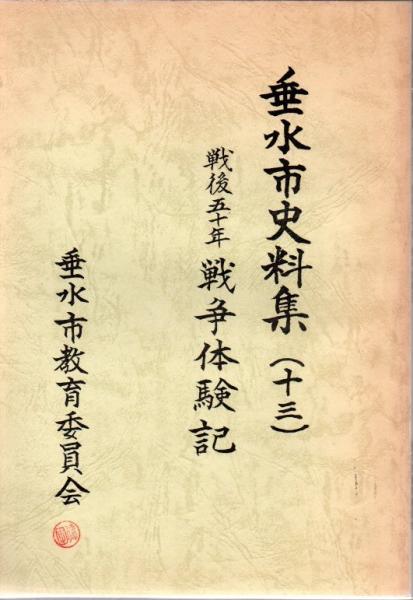 垂水市史料集(十三)
戦後五十年 戦争体験記
垂水市教育委員会